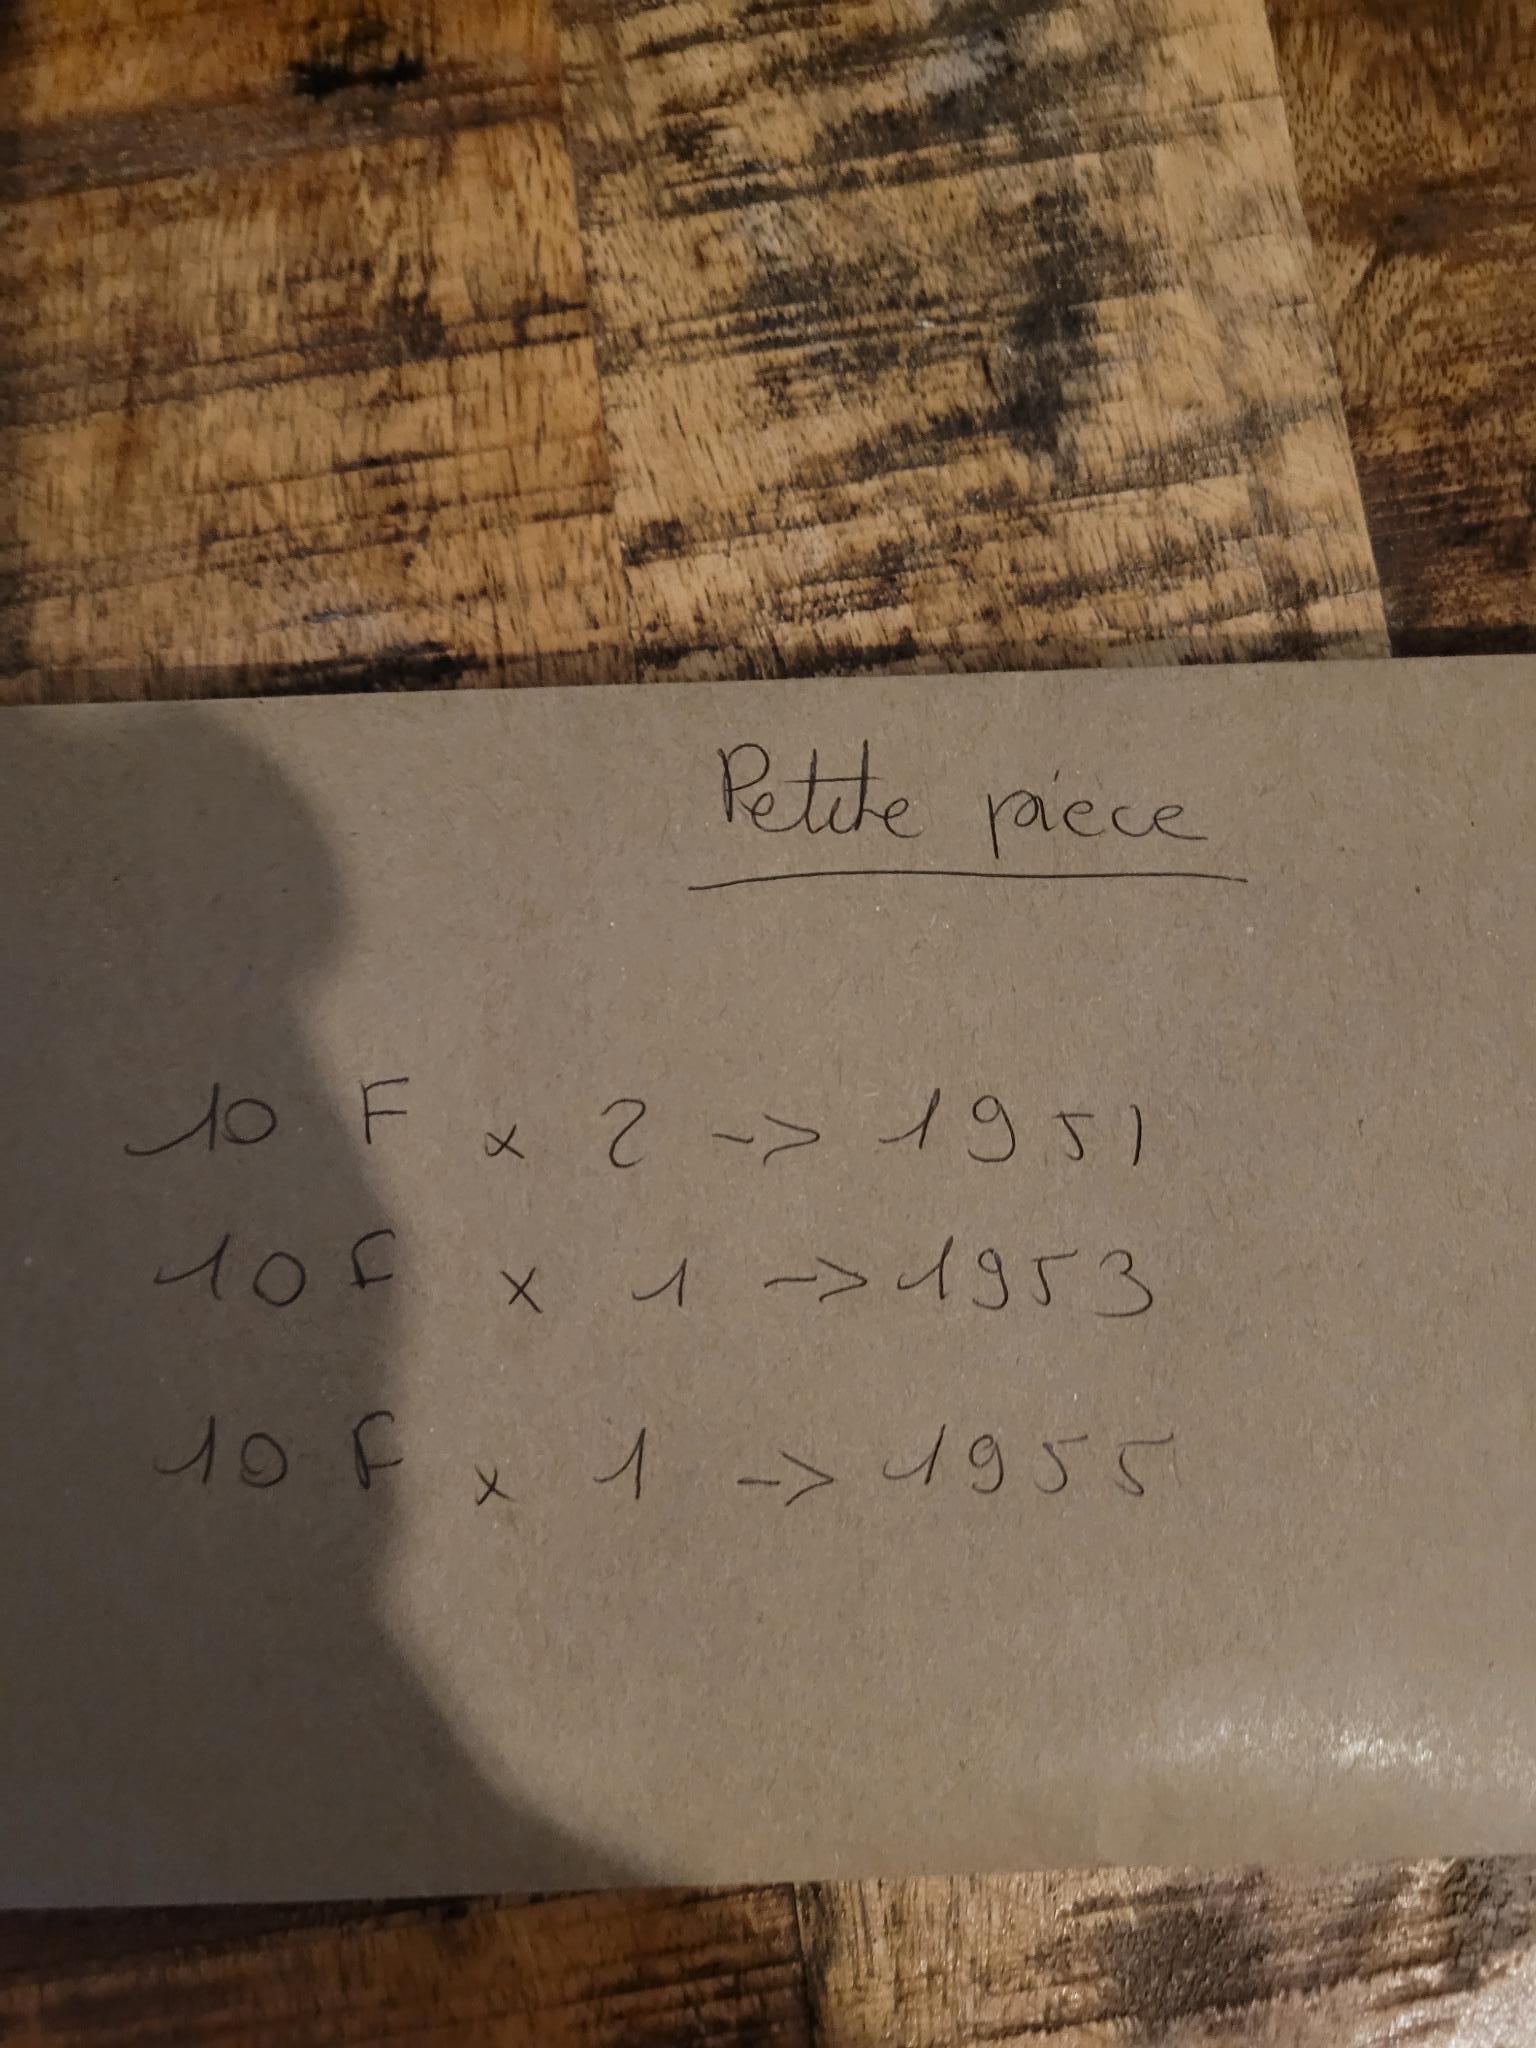 Petite pièce
10 F x 2 -> 1951
10 F x 1 -> 1953
10 F x 1 -> 1955